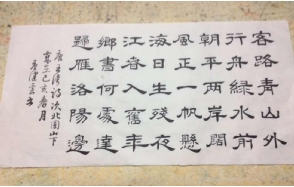 客路青山外
行舟綠水前
潮平兩岸闊
風正一帆懸
海日生殘夜
江春入舊年
鄉書何處達
歸雁洛陽邊
唐王灣詩次北固山下
己亥春月